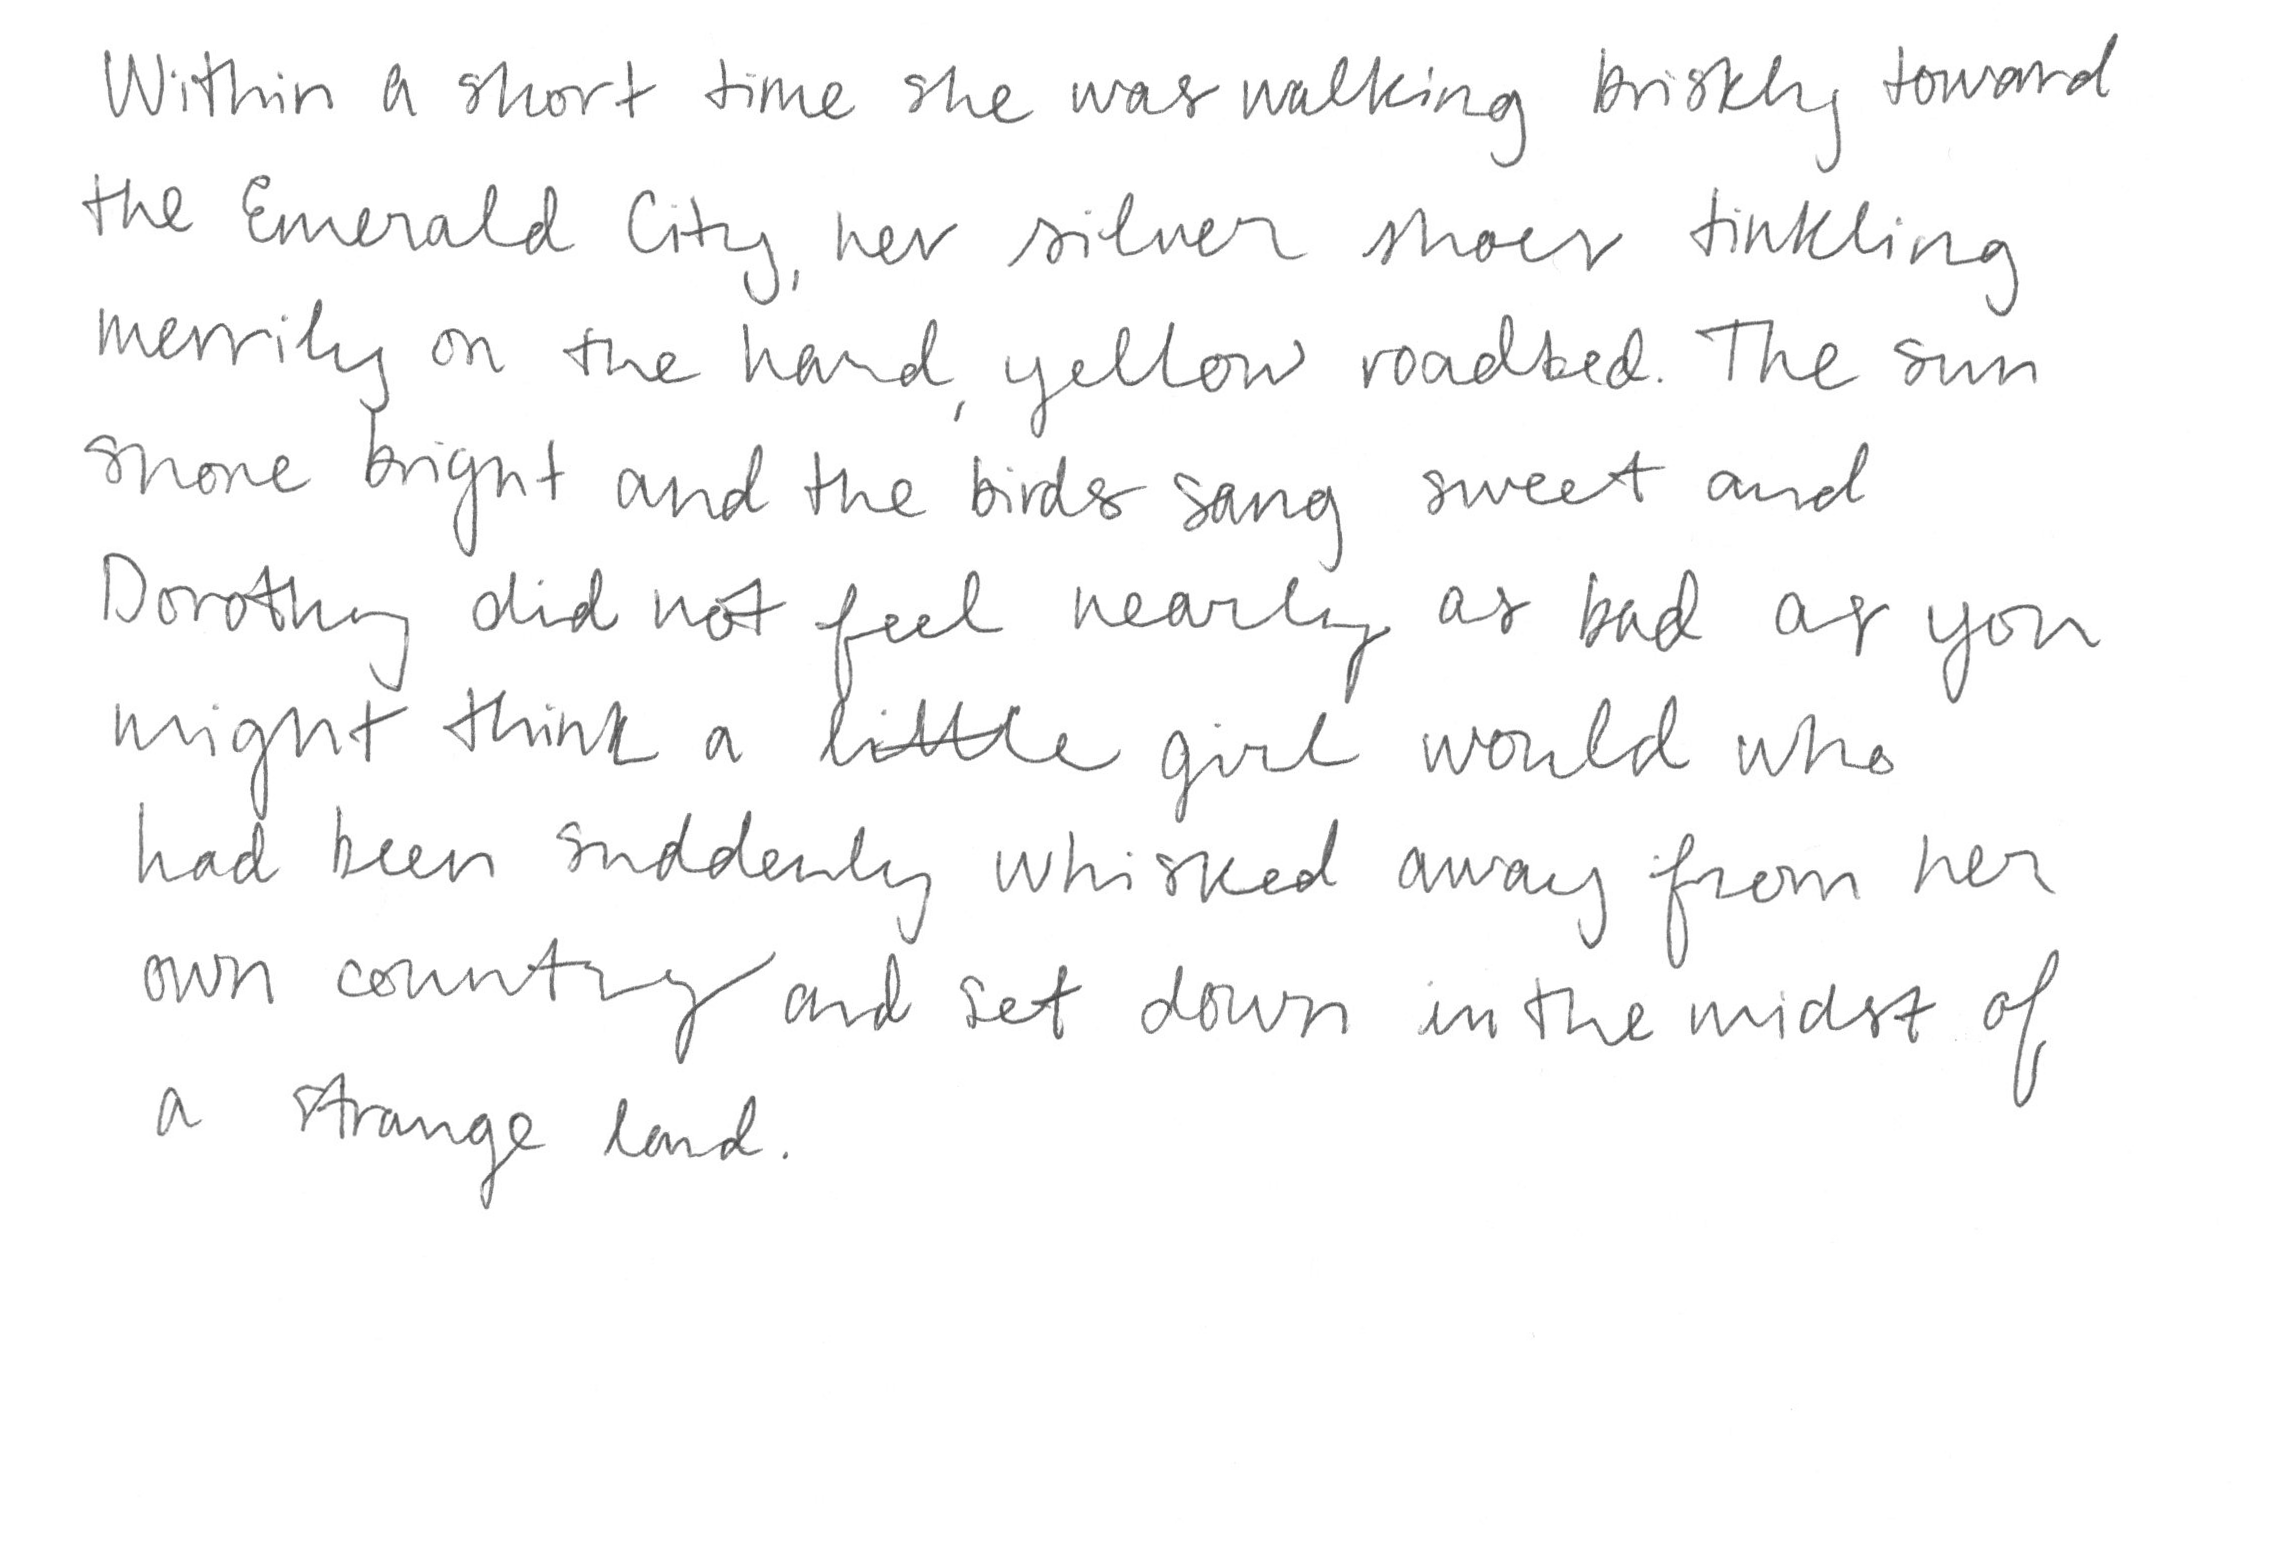 Within a short time she was walking briskly toward
the Emerald City, her silver shoes tinkling
merrily on the hard, yellow roadbed. The sun
shone bright and the birds sang sweet and
Dorothy did not feel nearly as bad as you
might think a little girl would who
had been suddenly whisked away from her
own country and set down in the midst of
a strange land.